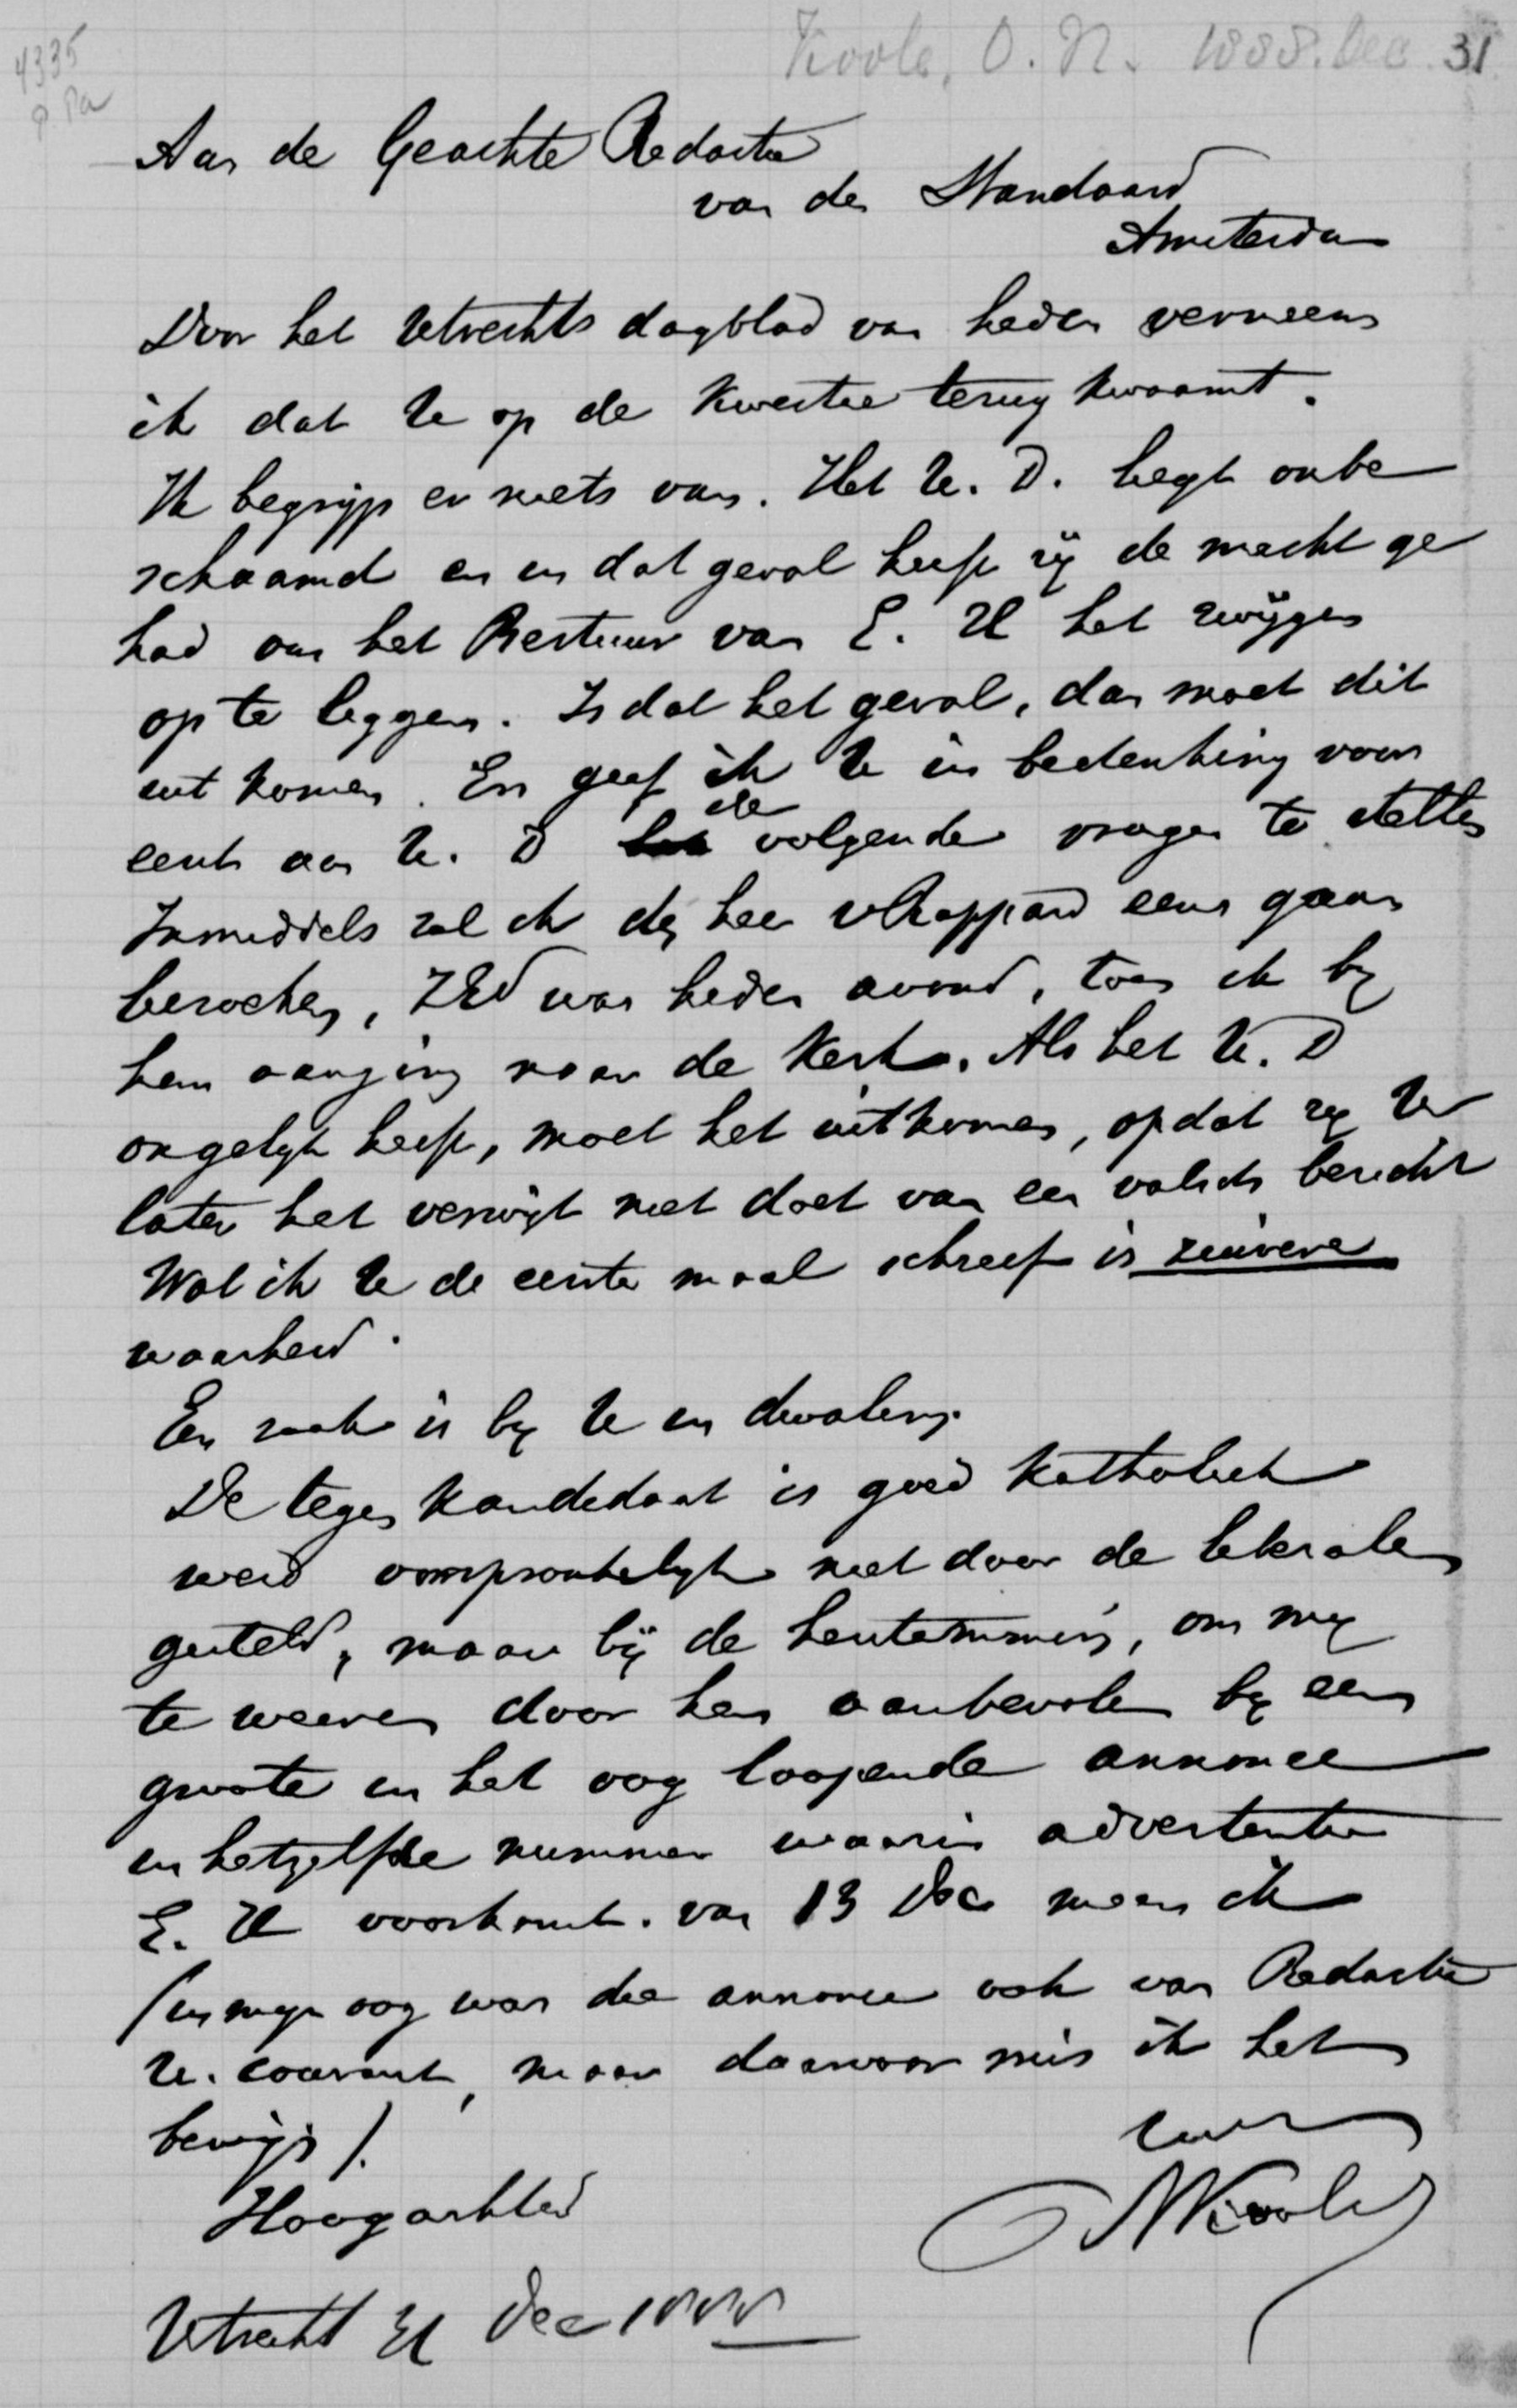 4335
Koole, O. N. 1888. Dec. 31
Aan de Geachte Redactie
van de Standaard
Amsterdam
Door het Utrechts dagblad van heden verneem
ik dat U op de kwestie terug kwaamt.
Ik begrijp er niets van. Het U. D. liegt onbe
schaamd en in dat geval heeft zij de macht ge
had om het Bestuur van E. U het zwijgen
op te leggen. Is dat het geval, dan moet dit
uit komen. En geef ik U in bedenking voor
eerst aan U. D de volgende vragen te stellen
Inmiddels zal ik den heer vRappard eens gaan
bezoeken, ZEd was heden avond, toen ik bij
hem aanging naar de Kerk. Als het U. D
ongelijk heeft, moet het uitkomen, opdat zij U
later het verwijt niet doet van een valsch bericht
Wat ik U de eerste maal schreef is zuivere
waarheid.
Een zaak is bij U in dwaling.
De tegen kandidaat is goed Katholiek
werd oorspronkelijk niet door de liberalen
gesteld, maar bij de herstemming, om mij
te weeren door hen aanbevolen bij een
groote in het oog loopende annonce
in hetzelfde nummer waarin advertentie
E. U voorkomt. van 13 Dec meen ik
(in mijn oog was die annonce ook van Redactie
U. courant, maar daarvoor mis ik het
bewijs).
Hoogachtend
NKoole
Utrecht 31 Dec 1888